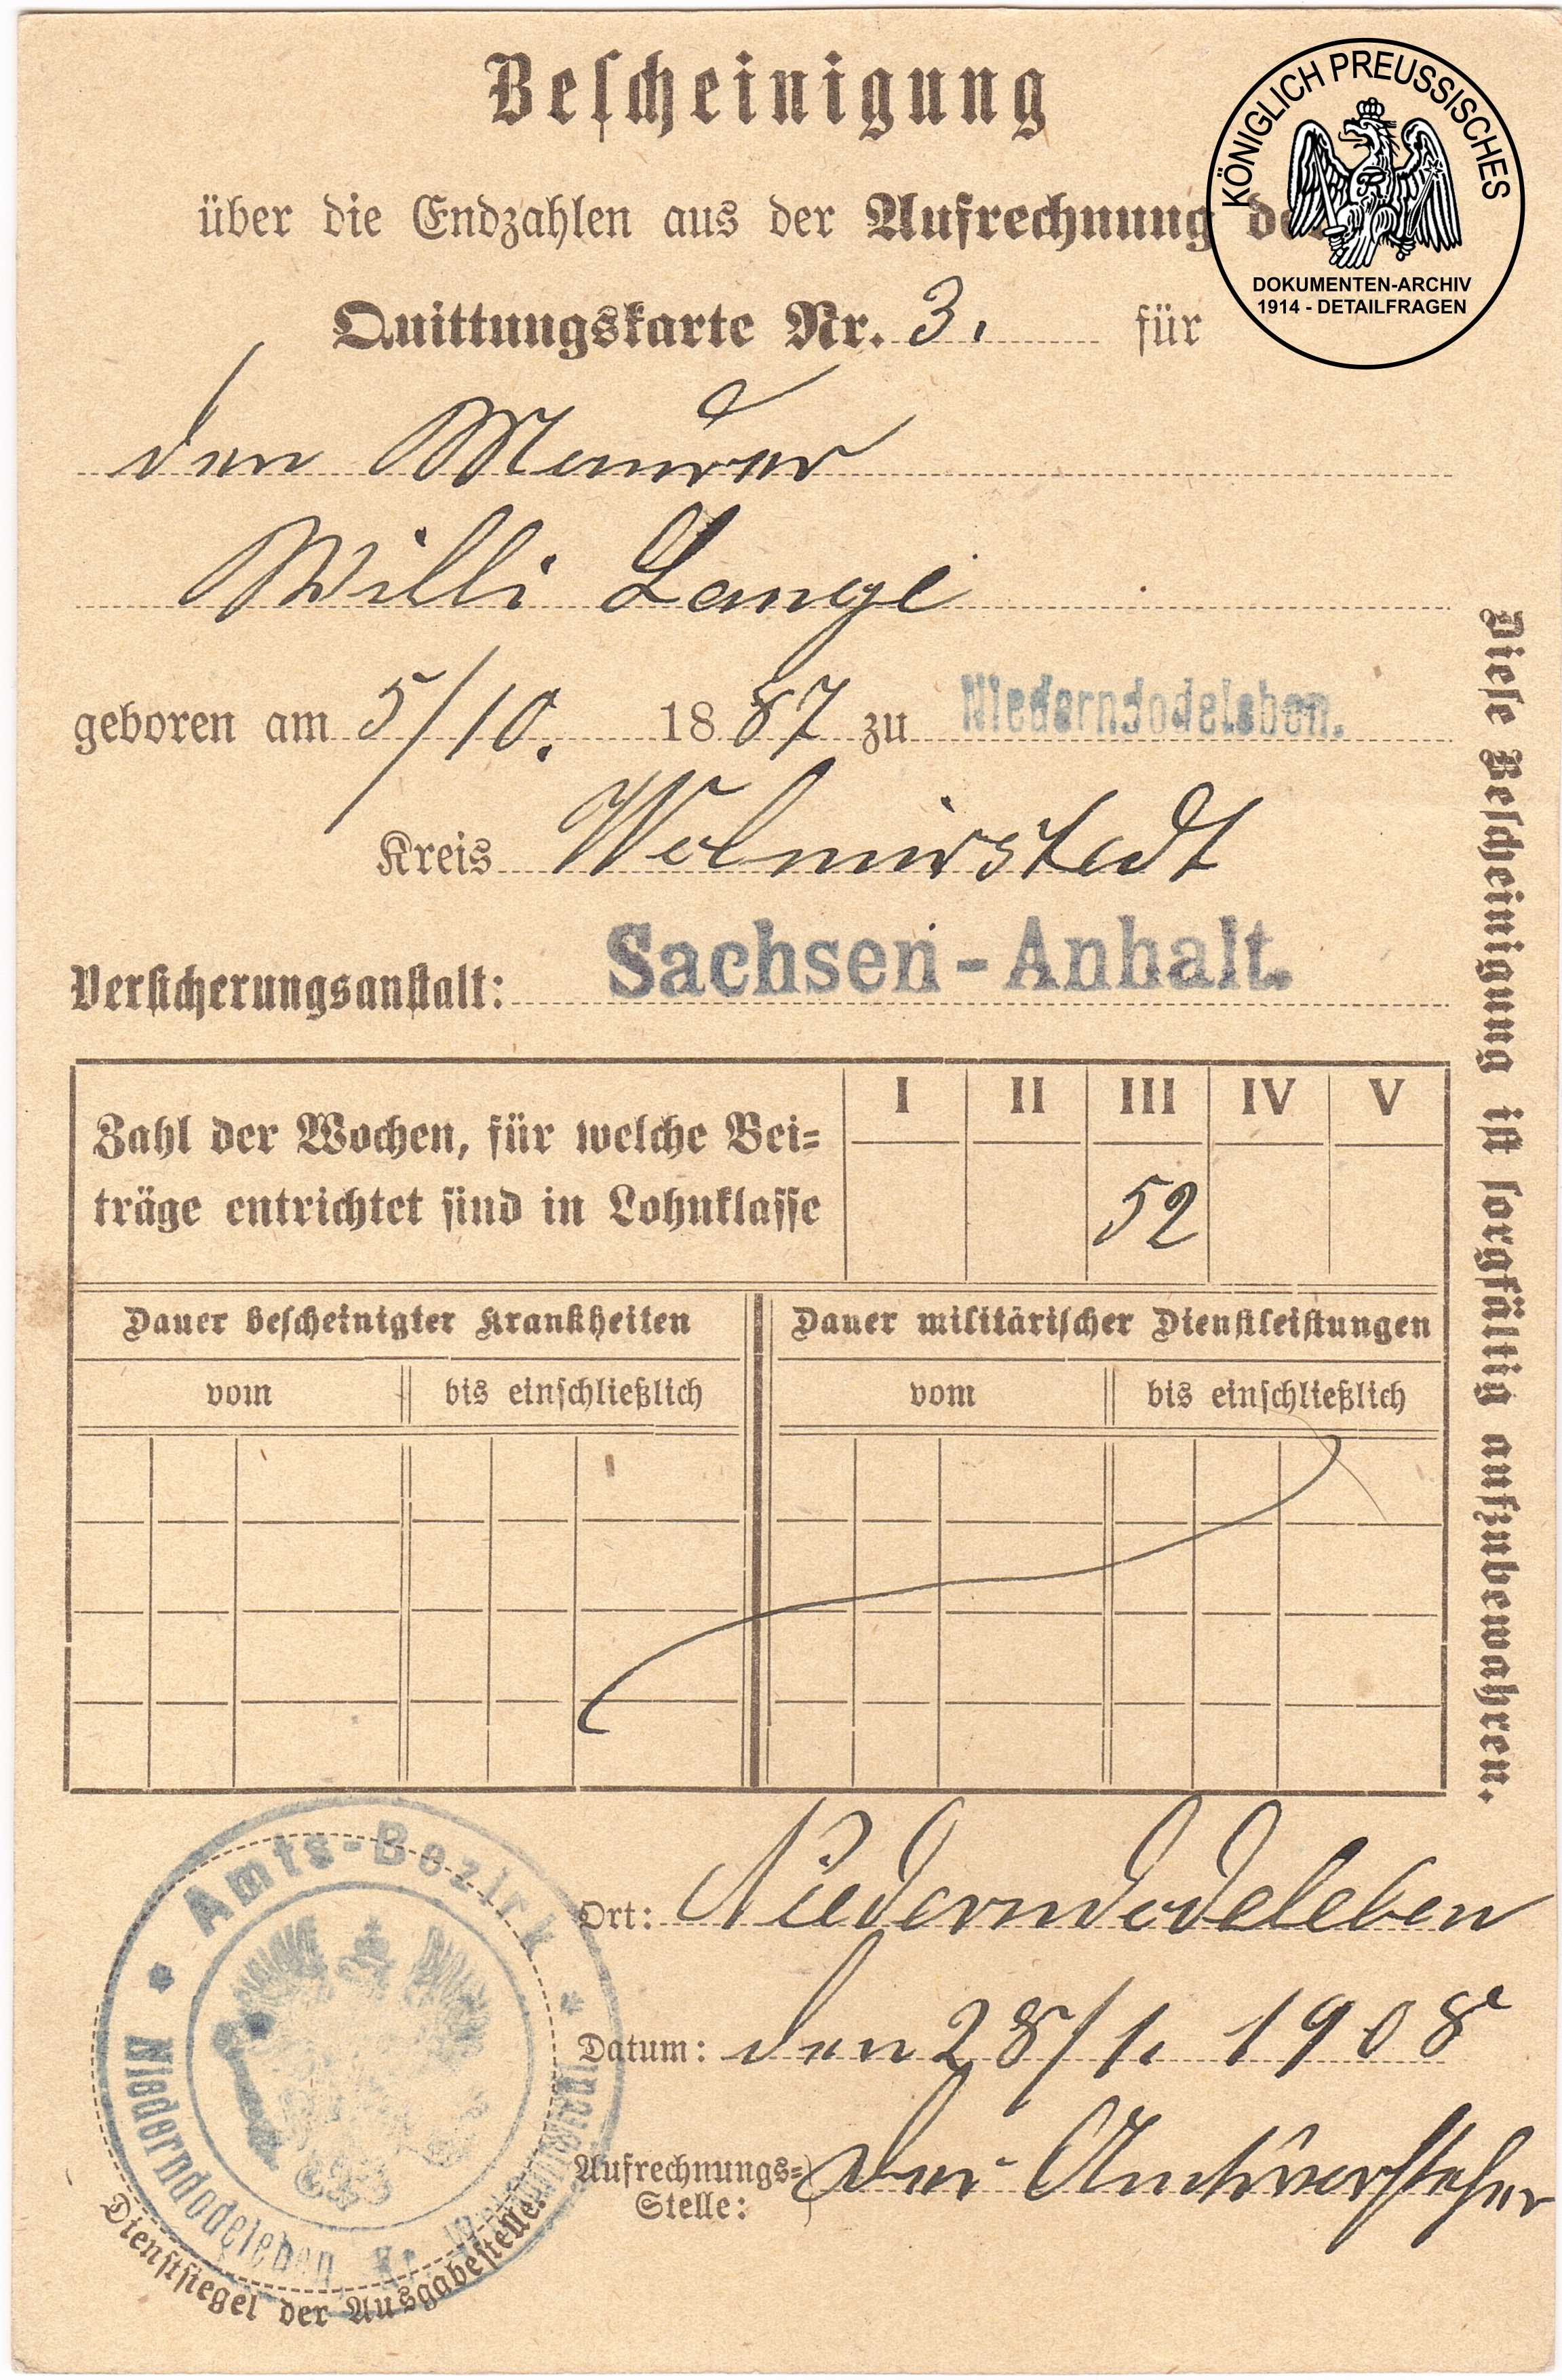 Bescheinigung
über die Endzahlen aus der Aufrechnung der
Quittungskarte Nr. 3. für
den Maurer
Willi Lange
geboren am 5/10. 1887 zu Niederndodeleben.
Kreis Wolmirstedt
Versicherungsanstalt: Sachsen-Anhalt.
I II III IV V
Zahl der Wochen, für welche Bei=
träge entrichtet sind in Lohnklasse
52
Dauer bescheinigter Krankheiten
Dauer militärischer Dienstleistungen
vom bis einschließlich vom bis einschließlich
Ort: Niederndodeleben
Datum: den 28/1. 1908
Aufrechnungs=
Stelle: Der Amtsvorsteher
Amts-Bezirk
Niederndodeleben, Kr. Wolmirstedt
Dienstsiegel der Ausgabestelle.
Diese Bescheinigung ist sorgfältig aufzubewahren.
KÖNIGLICH PREUSSISCHES
DOKUMENTEN-ARCHIV
1914 - DETAILFRAGEN